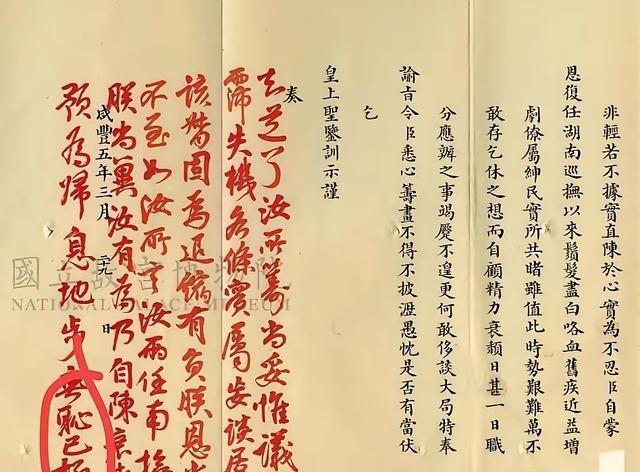 非輕若不據實直陳於心實為不忍臣自蒙
恩復任湖南巡撫以來鬚髮盡白咯血舊疾近益增
劇僚屬紳民實所共睹雖值此時勢艱難萬不
敢存乞休之想而自顧精力衰頹日甚一日職
分應辦之事竭蹷不遑更何敢侈談大局特奉
諭旨令臣悉心籌畫不得不披瀝愚忱是否有當伏
乞
皇上聖鑒訓示謹
奏
知道了汝所籌尚妥惟議
霈失機各條實屬妄談居
該督固為退縮有負朕恩尚
不至如汝所言汝兩任南撫
朕尚冀汝有為乃自陳衰
咸豐五年三月二十九日
預為歸息地步無恥已極
國立故宮博物院
NATIONAL PALACE MUSEUM